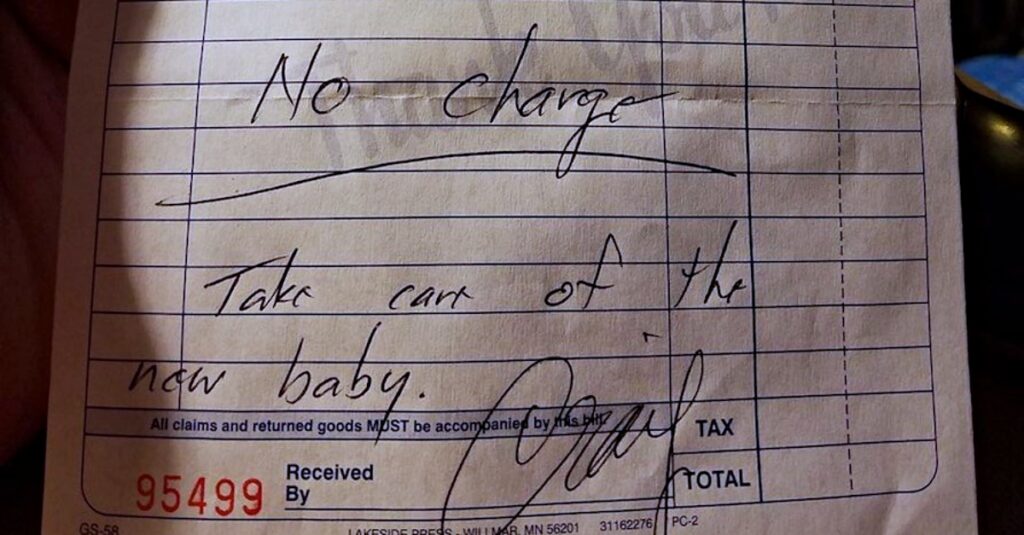 Thank You!
No charge
Take care of the
new baby.
All claims and returned goods MUST be accompanied by this bill.
TAX
95499
Received
By
TOTAL
GS-58
LAKESIDE PRESS - WILLMAR, MN 56201 31162276 PC-2